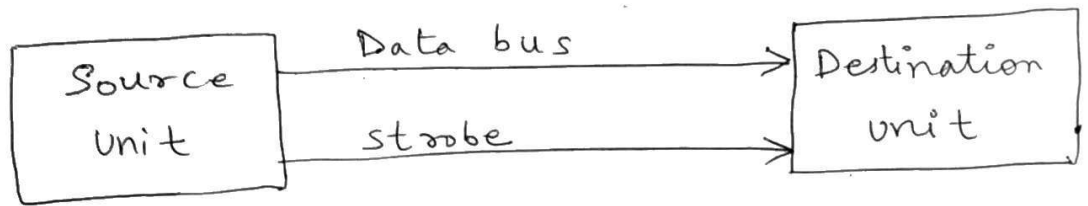 Source
unit
Data bus
strobe
Destination
unit